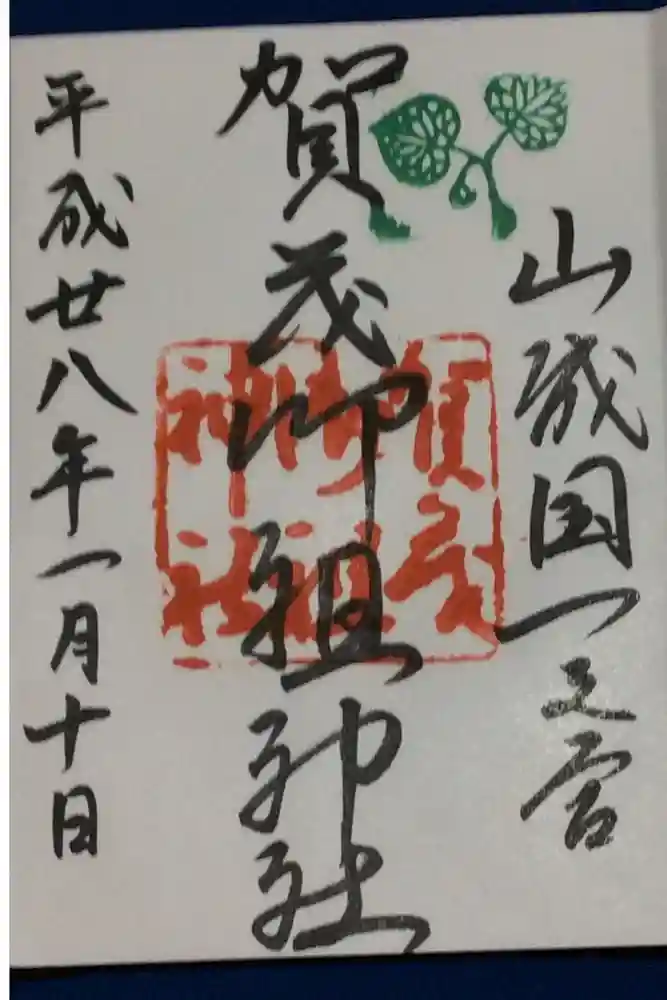 山城国一之宮
賀茂御祖神社
賀茂
御祖
神社
平成廿八年一月十日